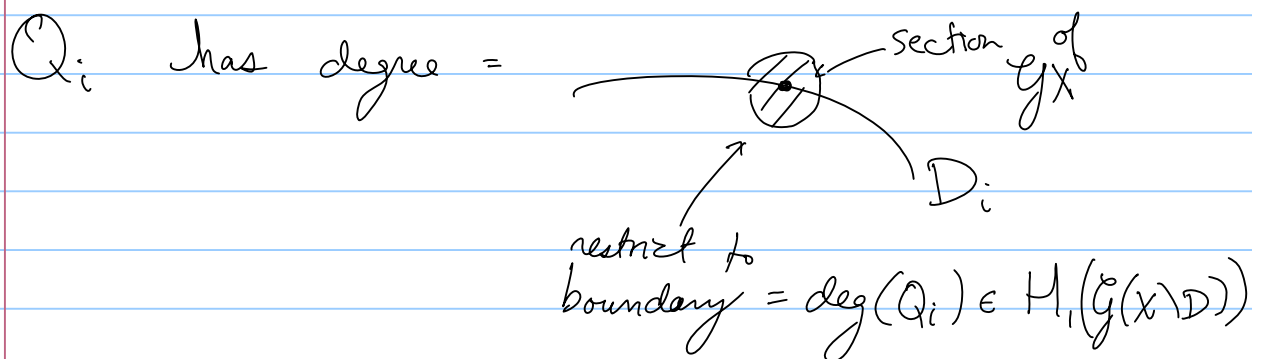 Qᵢ has degree =
section of
𝒢X
Dᵢ
restrict to
boundary = deg(Qᵢ) ∈ H₁(𝒢(X\D))